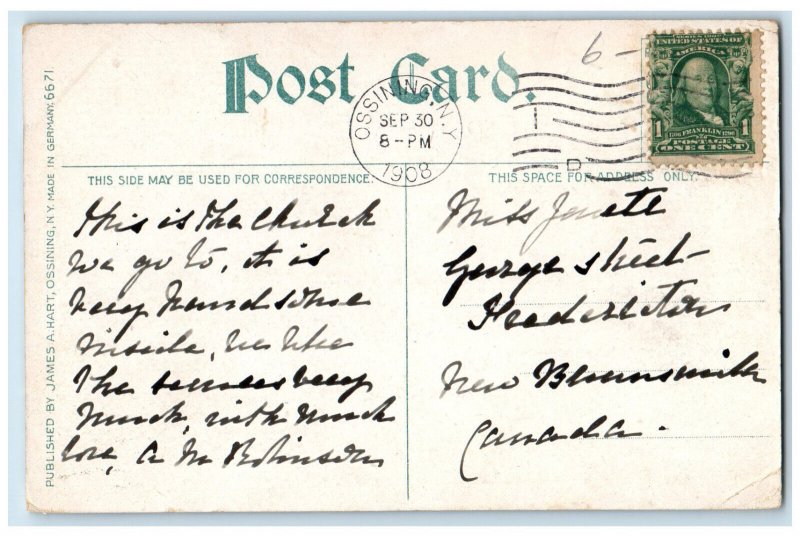 Post Card.
OSSINING, N.Y.
SEP 30
8-PM
1908
D
6-
SERIES 1902
UNITED STATES OF
AMERICA
1 1706 FRANKLIN 1790 1
POSTAGE
ONE CENT
THIS SIDE MAY BE USED FOR CORRESPONDENCE.
THIS SPACE FOR ADDRESS ONLY.
This is the Church
we go to, it is
very handsome
inside, we like
the services very
much, with much
love, A M Robinson
Miss
George street
Fredericton
New Brunswick
Canada.
PUBLISHED BY JAMES A. HART, OSSINING, N.Y. MADE IN GERMANY. 6671